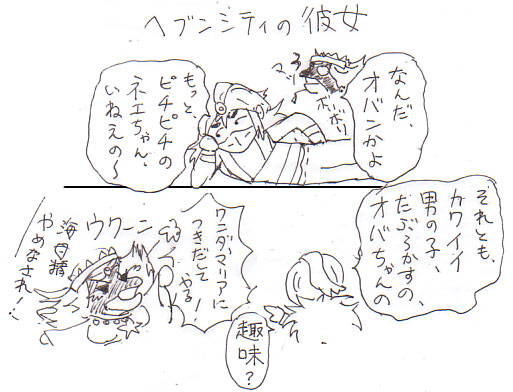 ヘブンシティの彼女
なんだ、
オバンかよ
ボリ
ボリ
もっと、
ピチピチの
ネエちゃん、
いねえの〜
それとも、
カワイイ
男の子、
たぶらかすの、
オバちゃんの
趣味?
ワンダ、マリアに
つきだして
やる!
ウクーン
海母精
やめなされ!